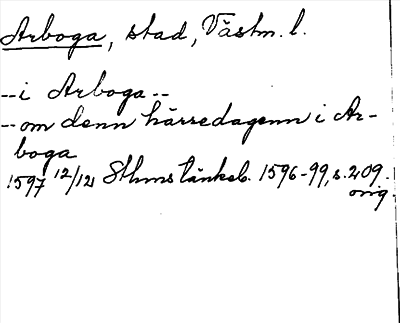 Arboga, stad, Västm. l.
--i Arboga--
--om denn härredagenn i Ar-
boga
1597 12/12 Sthms tänkeb. 1596-99, s. 209.
orig.